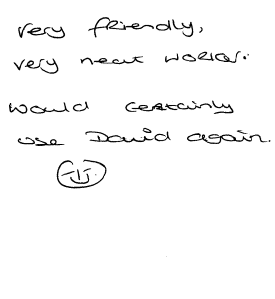 very friendly,
very neat worker.
Would certainly
use David again.